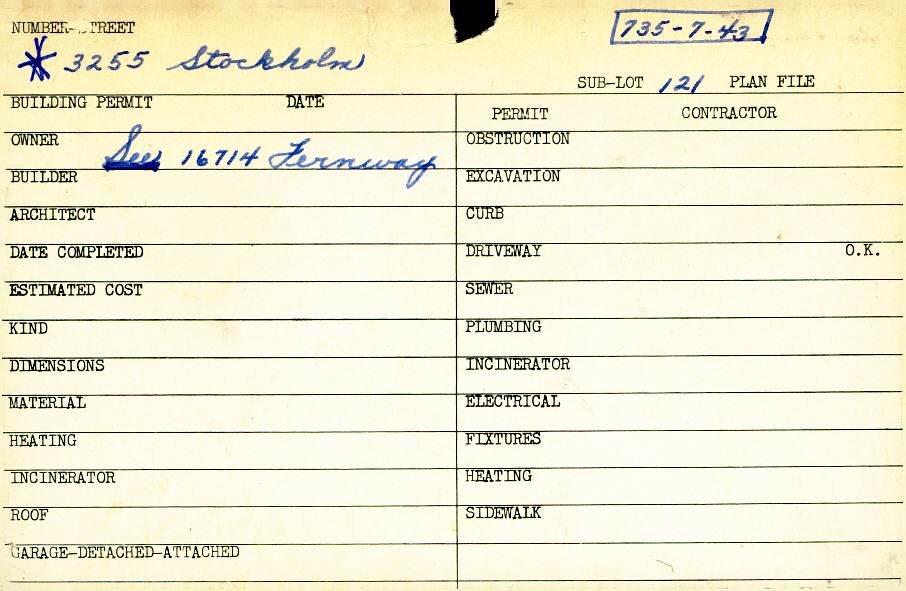 NUMBER-STREET
735-7-43
* 3255 Stockholm
SUB-LOT 121 PLAN FILE
BUILDING PERMIT DATE
PERMIT CONTRACTOR
OWNER
See 16714 Fernway
BUILDER
ARCHITECT
DATE COMPLETED
ESTIMATED COST
KIND
DIMENSIONS
MATERIAL
HEATING
INCINERATOR
ROOF
GARAGE-DETACHED-ATTACHED
OBSTRUCTION
EXCAVATION
CURB
DRIVEWAY O.K.
SEWER
PLUMBING
INCINERATOR
ELECTRICAL
FIXTURES
HEATING
SIDEWALK